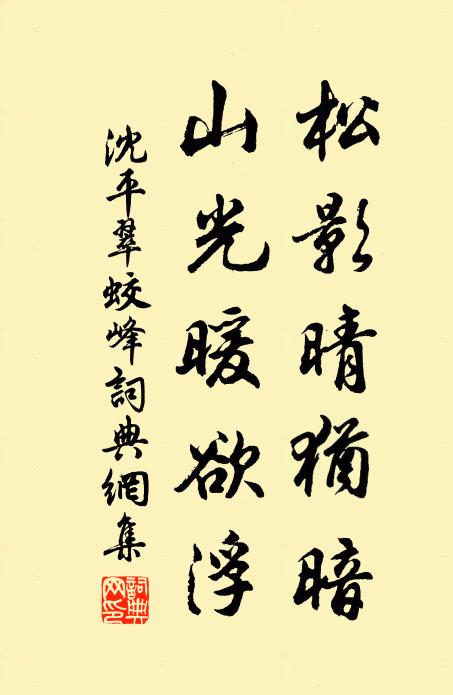 松影晴猶暗
山光暖欲浮
沈平翠蛟峰詞典網集
詞典网印